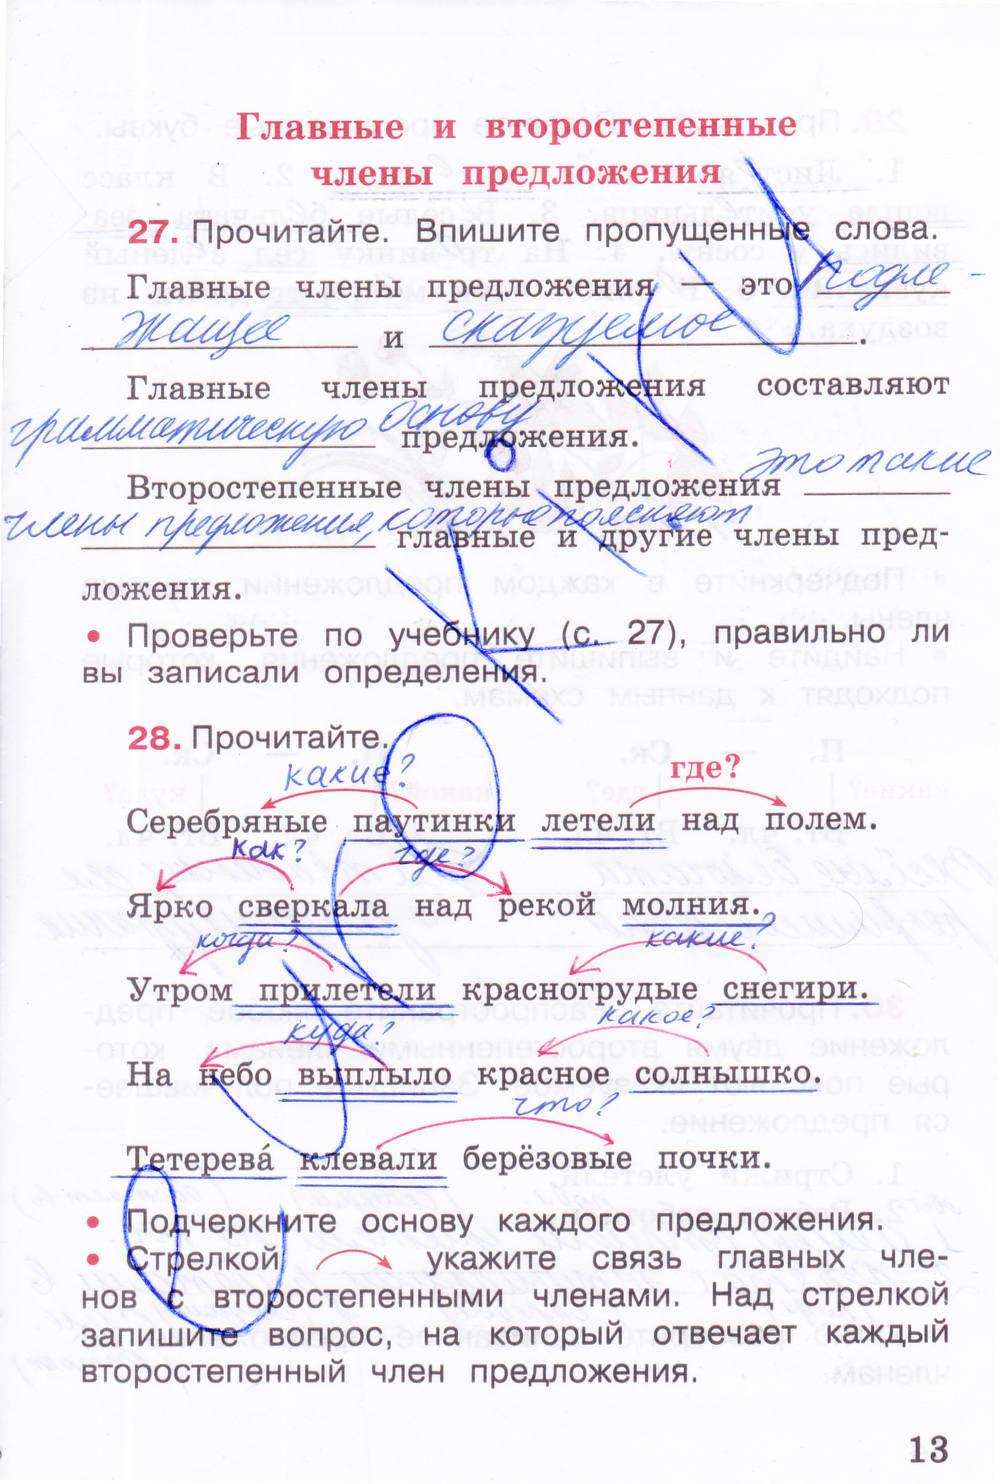 Главные и второстепенные
члены предложения
27. Прочитайте. Впишите пропущенные слова.
Главные члены предложения — это подле-
жащее и сказуемое.
Главные члены предложения составляют
грамматическую основу предложения.
Второстепенные члены предложения это такие
члены предложения, которые поясняют главные и другие члены пред-
ложения.
• Проверьте по учебнику (с. 27), правильно ли
вы записали определения.
28. Прочитайте.
какие? где?
Серебряные паутинки летели над полем.
как? где?
Ярко сверкала над рекой молния.
когда? какие?
Утром прилетели красногрудые снегири.
куда? какое?
На небо выплыло красное солнышко.
что?
Тетерева́ клевали берёзовые почки.
• Подчеркните основу каждого предложения.
• Стрелкой укажите связь главных чле-
нов с второстепенными членами. Над стрелкой
запишите вопрос, на который отвечает каждый
второстепенный член предложения.
13